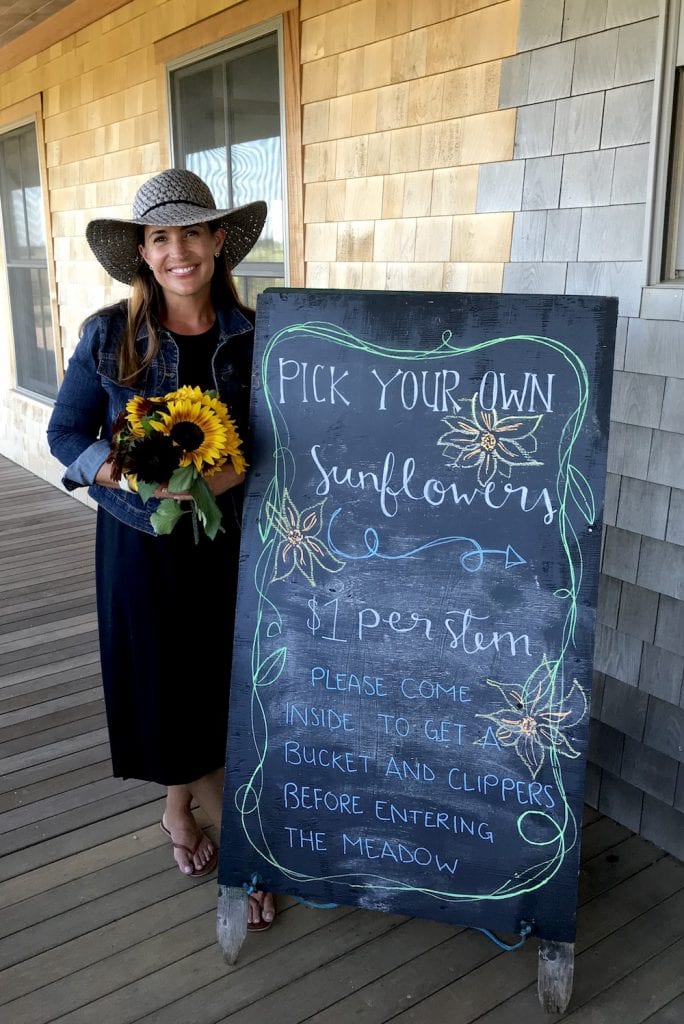 PICK YOUR OWN
Sunflowers
$1 per stem
PLEASE COME
INSIDE TO GET A
BUCKET AND CLIPPERS
BEFORE ENTERING
THE MEADOW